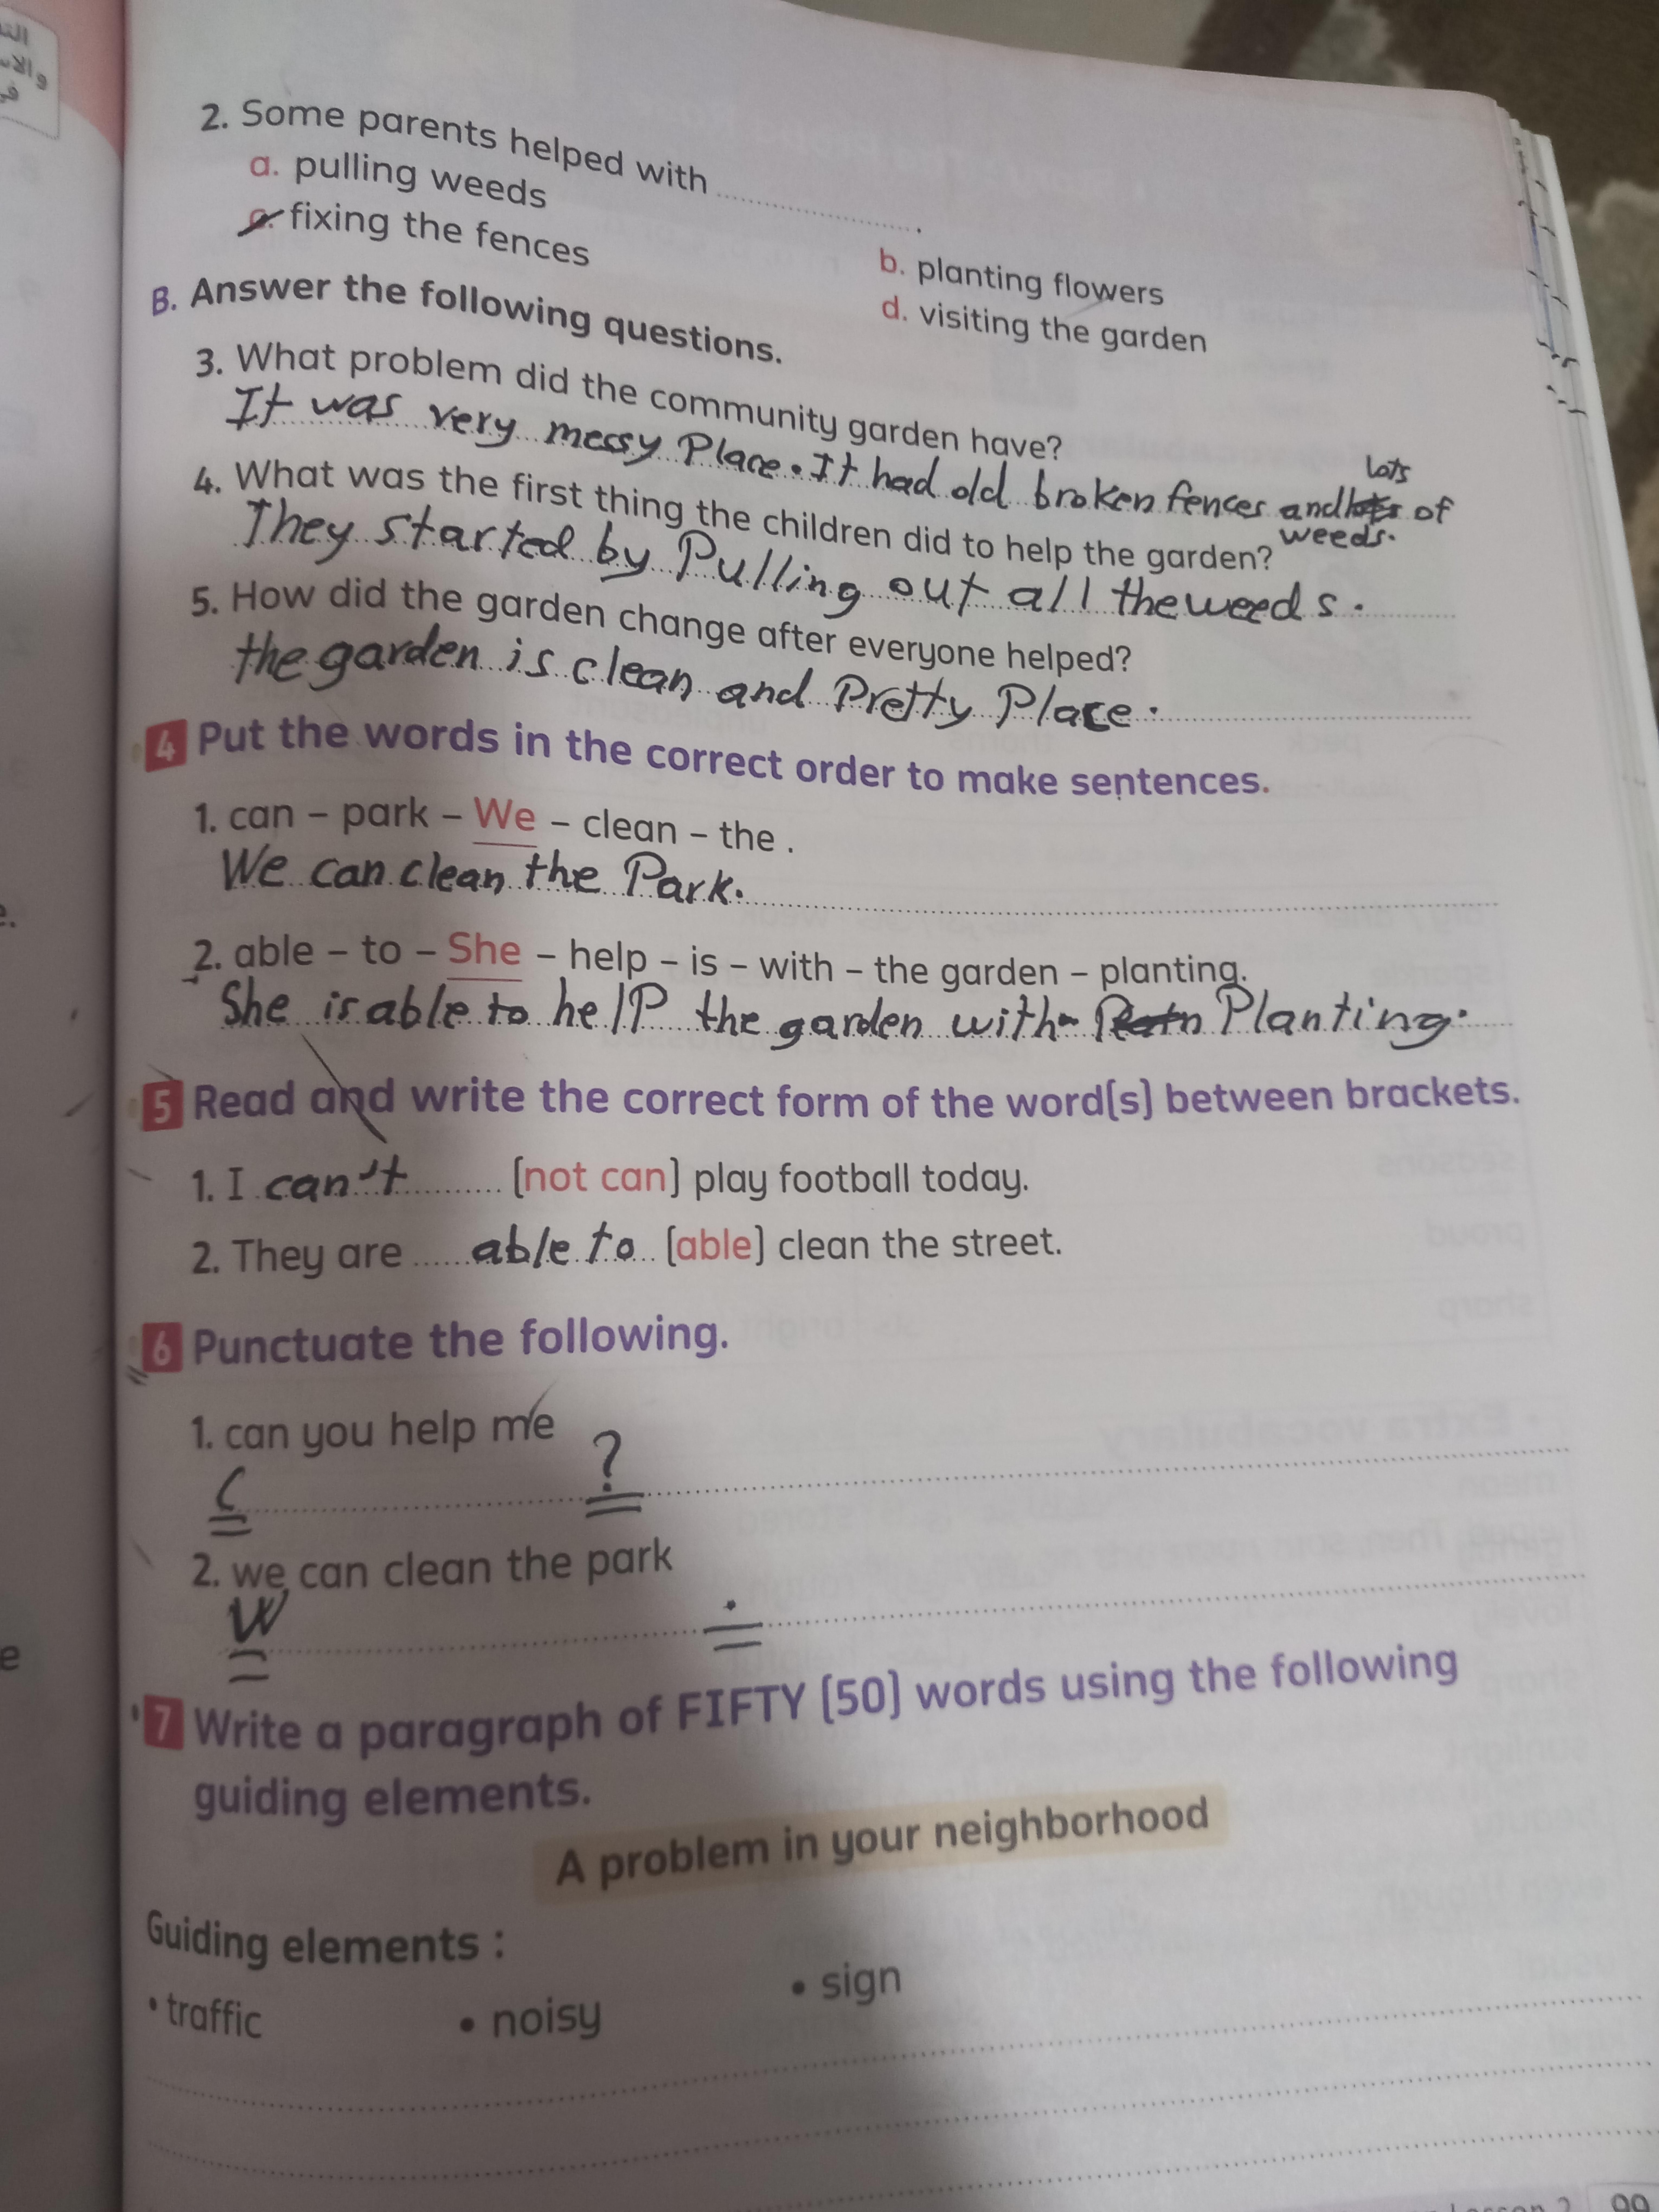 2. Some parents helped with ..............
a. pulling weeds
b. planting flowers
c. fixing the fences
d. visiting the garden
B. Answer the following questions.
3. What problem did the community garden have?
It was very messy Place. It had old broken fences and lots of
lots
weeds.
4. What was the first thing the children did to help the garden?
They started by Pulling out all the weeds.
5. How did the garden change after everyone helped?
the garden is clean and Pretty Place.
4 Put the words in the correct order to make sentences.
1. can – park – We – clean – the .
We can clean the Park.
2. able – to – She – help – is – with – the garden – planting.
She is able to help the garden with Planting.
5 Read and write the correct form of the word(s) between brackets.
1. I can't (not can) play football today.
2. They are able to (able) clean the street.
6 Punctuate the following.
1. can you help me
C ?
2. we can clean the park
W .
7 Write a paragraph of FIFTY (50) words using the following
guiding elements.
A problem in your neighborhood
Guiding elements :
• traffic • noisy • sign
99